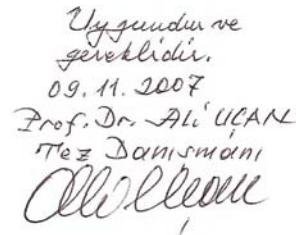 Uygundur ve
gereklidir.
09.11.2007
Prof. Dr. Ali UÇAN
Tez Danışmanı